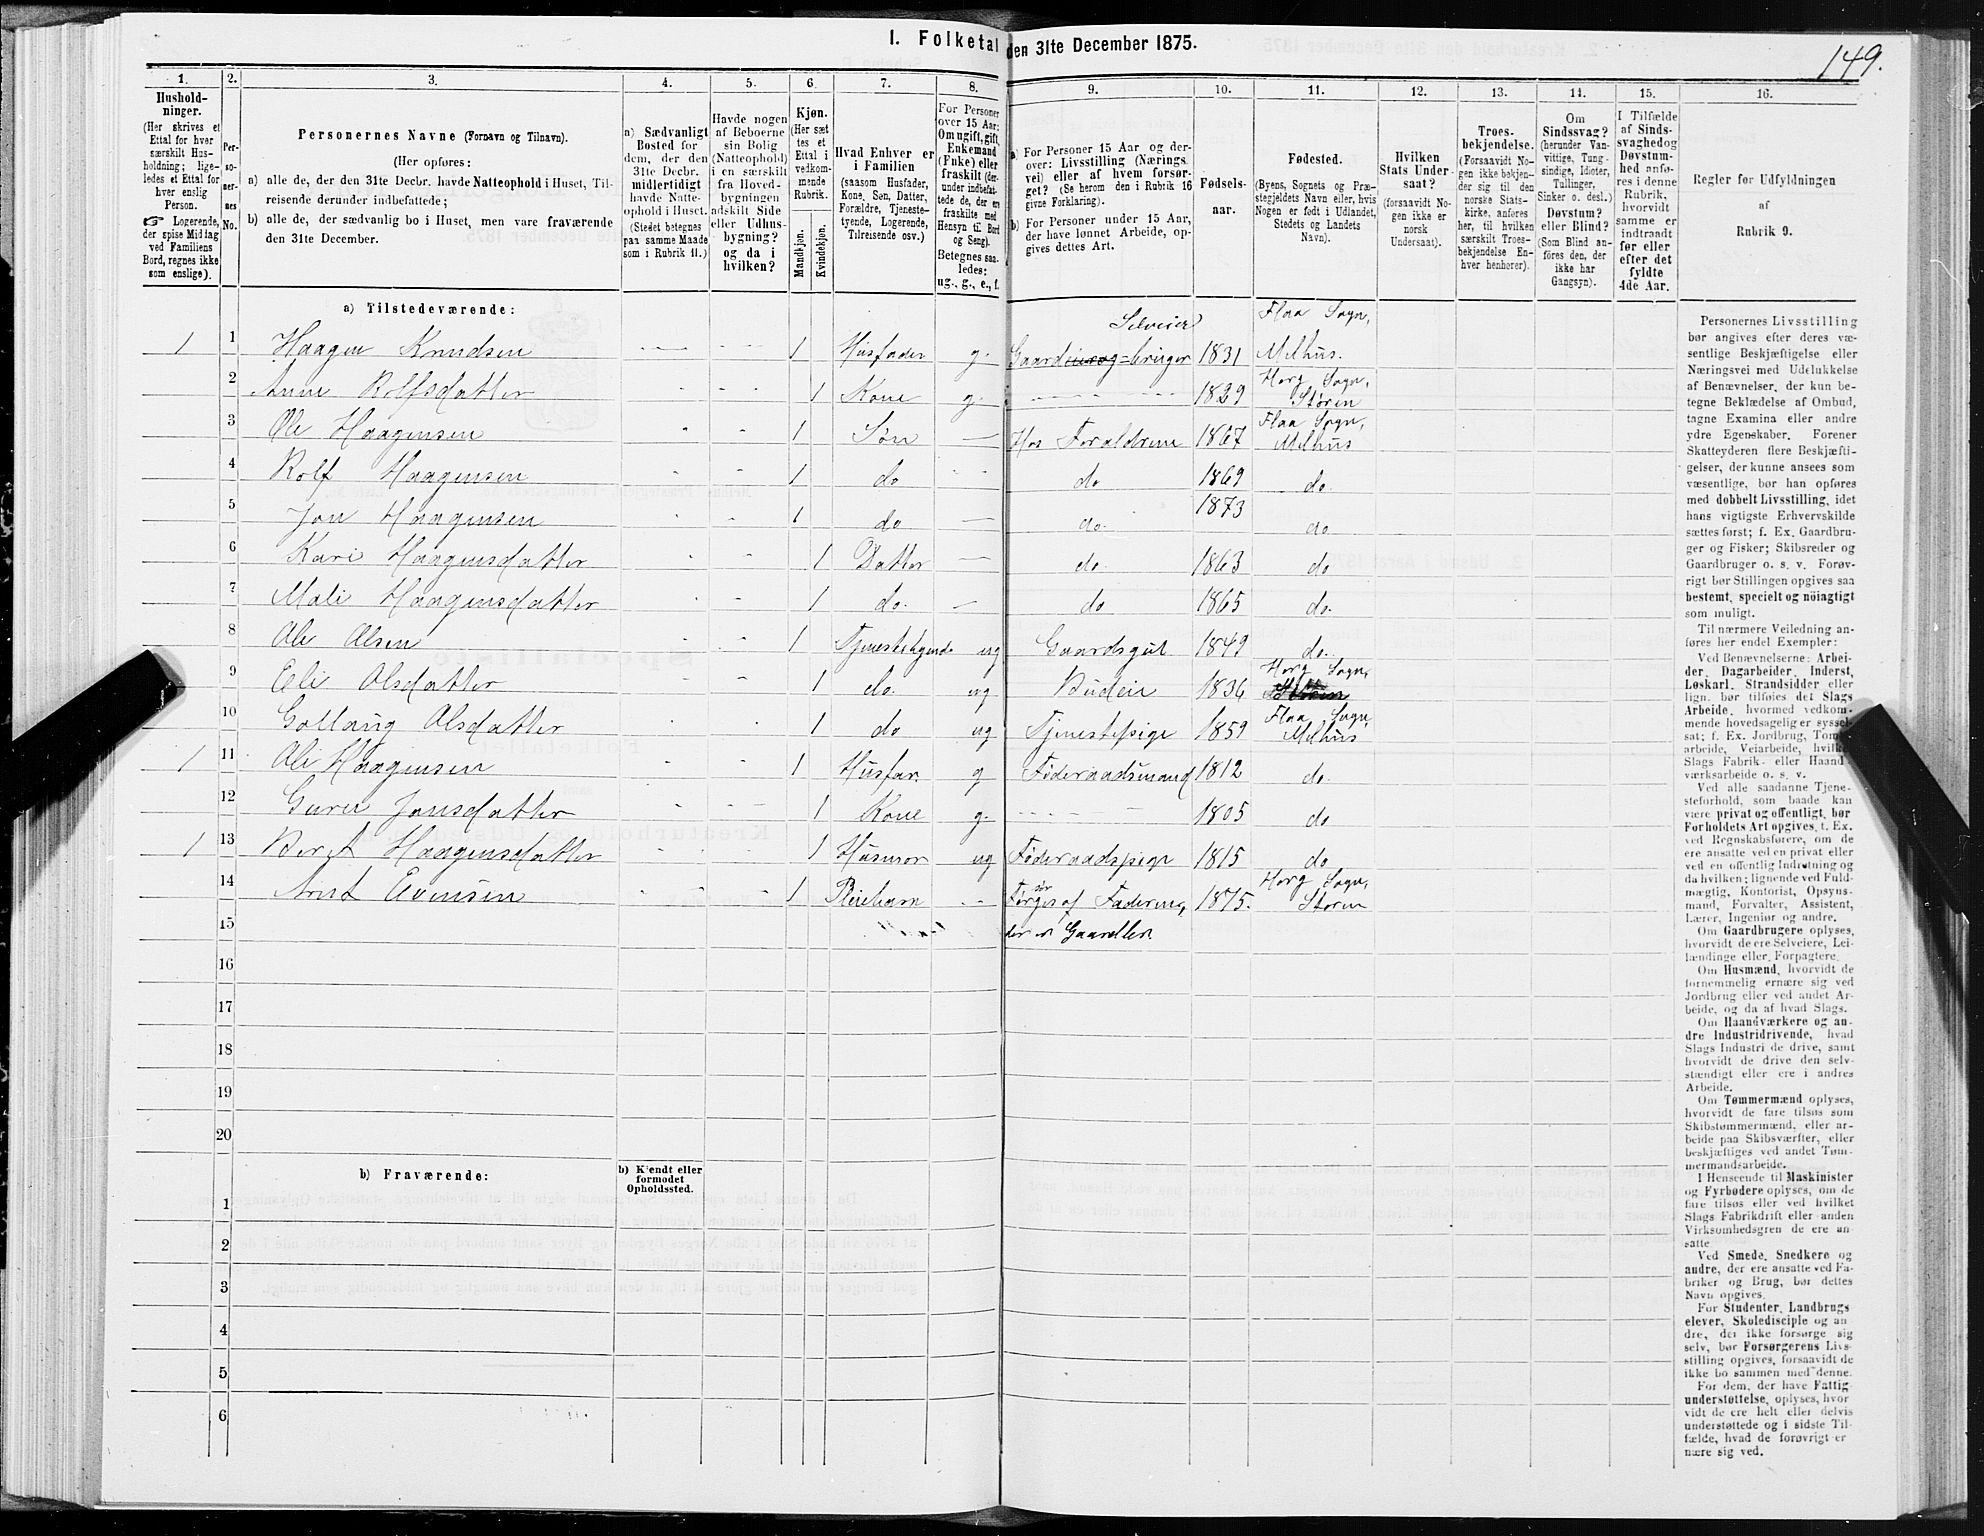 I. Folketal den 31te December 1875.
149.
1. 2. 3. 4. 5. 6. 7. 8. 9. 10. 11. 12. 13. 14. 15. 16.
Husholdninger.
(Her skrives et Ettal for hver særskilt Husholdning; ligeledes et Ettal for hver enslig Person.
☞ Logerende, der spise Middag ved Familiens Bord, regnes ikke som enslige).
Personernes No.
Personernes Navne (Fornavn og Tilnavn).
(Her opføres:
a) alle de, der den 31te Decbr. havde Natteophold i Huset, Tilreisende derunder indbefattede;
b) alle de, der sædvanlig bo i Huset, men vare fraværende den 31te December.
a) Sædvanligt Bosted for dem, der den 31te Decbr. midlertidigt havde Natteophold i Huset.
(Stedet betegnes paa samme Maade som i Rubrik 11.)
Havde nogen af Beboerne sin Bolig (Natteophold) i en særskilt fra Hovedbygningen adskilt Side eller Udhusbygning? og da i hvilken?
Kjøn.
(Her sættes et Ettal i vedkommende Rubrik.
Mandkjøn. Kvindekjøn.
Hvad Enhver er i Familien
(saasom Husfader, Kone, Søn, Datter, Forældre, Tjenestetyende, Logerende, Tilreisende osv.)
For Personer over 15 Aar: Om ugift, gift, Enkemand (Enke) eller fraskilt (derunder indbefattede de, der ere fraskilte med Hensyn til Bord og Seng).
Betegnes saaledes: ug., g., e., f.
a) For Personer 15 Aar og derover: Livsstilling (Næringsvei) eller af hvem forsørget? (Se herom den i Rubrik 16 givne Forklaring).
b) For Personer under 15 Aar, der have lønnet Arbeide, opgives dettes Art.
Fødselsaar.
Fødested.
(Byens, Sognets og Præstegjeldets Navn eller, hvis Nogen er født i Udlandet, Stedets og Landets Navn).
Hvilken Stats Undersaat?
(forsaavidt Nogen ikke er norsk Undersaat).
Troesbekjendelse.
(Forsaavidt Nogen ikke bekjender sig til den norske Statskirke, anføres her, til hvilken særskilt Troesbekjendelse Enhver henhører).
Om Sindssvag?
(herunder Vanvittige, Tungsindige, Idioter, Tullinger, Sinker o. desl.)
Døvstum? eller Blind?
(Som Blind anføres den, der ikke har Gangsyn).
I Tilfælde af Sindssvaghed og Døvstumhed anføres i denne Rubrik, hvorvidt samme er indtraadt før eller efter det fyldte 4de Aar.
Regler for Udfyldningen af Rubrik 9.
a) Tilstedeværende:
1 1 Haagen Knudsen 1 Husfader g. Selveier Gaardbruger 1831 Flaa Sogn, Melhus.
2 Anne Rolfsdatter 1 Kone g. 1829 Horg Sogn, Støren
3 Ole Haagensen 1 Søn Hos Forældrene 1867 Flaa Sogn, Melhus
4 Rolf Haagensen 1 do do 1869 do.
5 Jon Haagensen 1 do do. 1873 do
6 Kari Haagensdatter 1 Datter do. 1863 do
7 Mali Haagensdatter 1 do. do 1865 do.
8 Ole Olsen 1 Tjenestetyende ug Gaardsgut 1849 do.
9 Eli Olsdatter 1 do. ug Budeie 1836 Horg Sogn, Støren
10 Gollaug Olsdatter 1 do ug Tjenestepige 1859 Flaa Sogn Melhus
1 11 Ole Haagensen 1 Husfar. g Føderaadsmand 1812 do.
12 Guru Jonsdatter 1 Kone g. 1805 do
1 13 Berit Haagensdatter 1 Husmor ug Føderaadspige 1815 do
14 Arnt Evensen 1 Pleiebarn Forsørges af Faderen, 1875. Horg Sogn, Støren
15 der er Gaardbr.
16
17
18
19
20
b) Fraværende:
b) Kjendt eller formodet Opholdssted.
1
2
3
4
5
6
Personernes Livsstilling bør angives efter deres væsentlige Beskjæftigelse eller Næringsvei med Udelukkelse af Benævnelser, der kun betegne Beklædelse af Ombud, tagne Examina eller andre ydre Egenskaber. Forener Skatteyderen flere Beskjæftigelser, der kunne ansees som væsentlige, bør han opføres med dobbelt Livsstilling, idet hans vigtigste Erhvervskilde sættes først; f. Ex. Gaardbruger og Fisker; Skibsreder og Gaardbruger o. s. v. Forøvrigt bør Stillingen opgives saa bestemt, specielt og nöiagtigt som muligt.
Til nærmere Veiledning anføres her endel Exempler:
Ved Benævnelserne: Arbeider, Dagarbeider, Inderst, Løskarl, Strandsidder eller lign. bør tilføies det Slags Arbeide, hvormed vedkommende hovedsagelig er sysselsat; f. Ex. Jordbrug, Tomtearbeide, Veiarbeide, hvilket Slags Fabrik- eller Haandværksarbeide o. s. v.
Ved alle saadanne Tjenesteforhold, som baade kan være privat og offentligt, bør Forholdets Art opgives, t. Ex. ved Regnskabsførere, om de ere ansatte ved en privat eller ved en offentlig Indretning og da hvilken; lignende ved Fuldmægtig, Kontorist, Opsynsmand, Forvalter, Assistent, Lærer, Ingeniør og andre.
Om Gaardbrugere oplyses, hvorvidt de ere Selveiere, Leilændinge eller Forpagtere.
Om Husmænd, hvorvidt de fornemmelig ernære sig ved Jordbrug eller ved andet Arbeide, og da af hvad Slags.
Om Haandværkere og andre Industridrivende, hvad Slags Industri de drive, samt hvorvidt de drive den selvstændigt eller ere i andres Arbeide.
Om Tømmermænd oplyses, hvorvidt de fare tilsøs som Skibstømmermænd, eller arbeide paa Skibsværfter, eller beskjæftiges ved andet Tømmermandsarbeide.
I Henseende til Maskinister og Fyrbødere oplyses, om de fare tilsøs eller ved hvilket Slags Fabrikdrift eller anden Virksomhedsgren de ere ansatte
Ved Smede, Snedkere og andre, der ere ansatte ved Fabriker og Brug, bør dettes Navn opgives.
For Studenter, Landbrugselever, Skoledisciple og andre, der ikke forsørge sig selv, bør Forsørgerens Livsstilling opgives, forsaavidt de ikke bo sammen med denne.
For dem, der have Fattigunderstøttelse, oplyses, hvorvidt de ere helt eller delvis understøttede og i sidste Tilfælde, hvad de forøvrigt ernære sig ved.